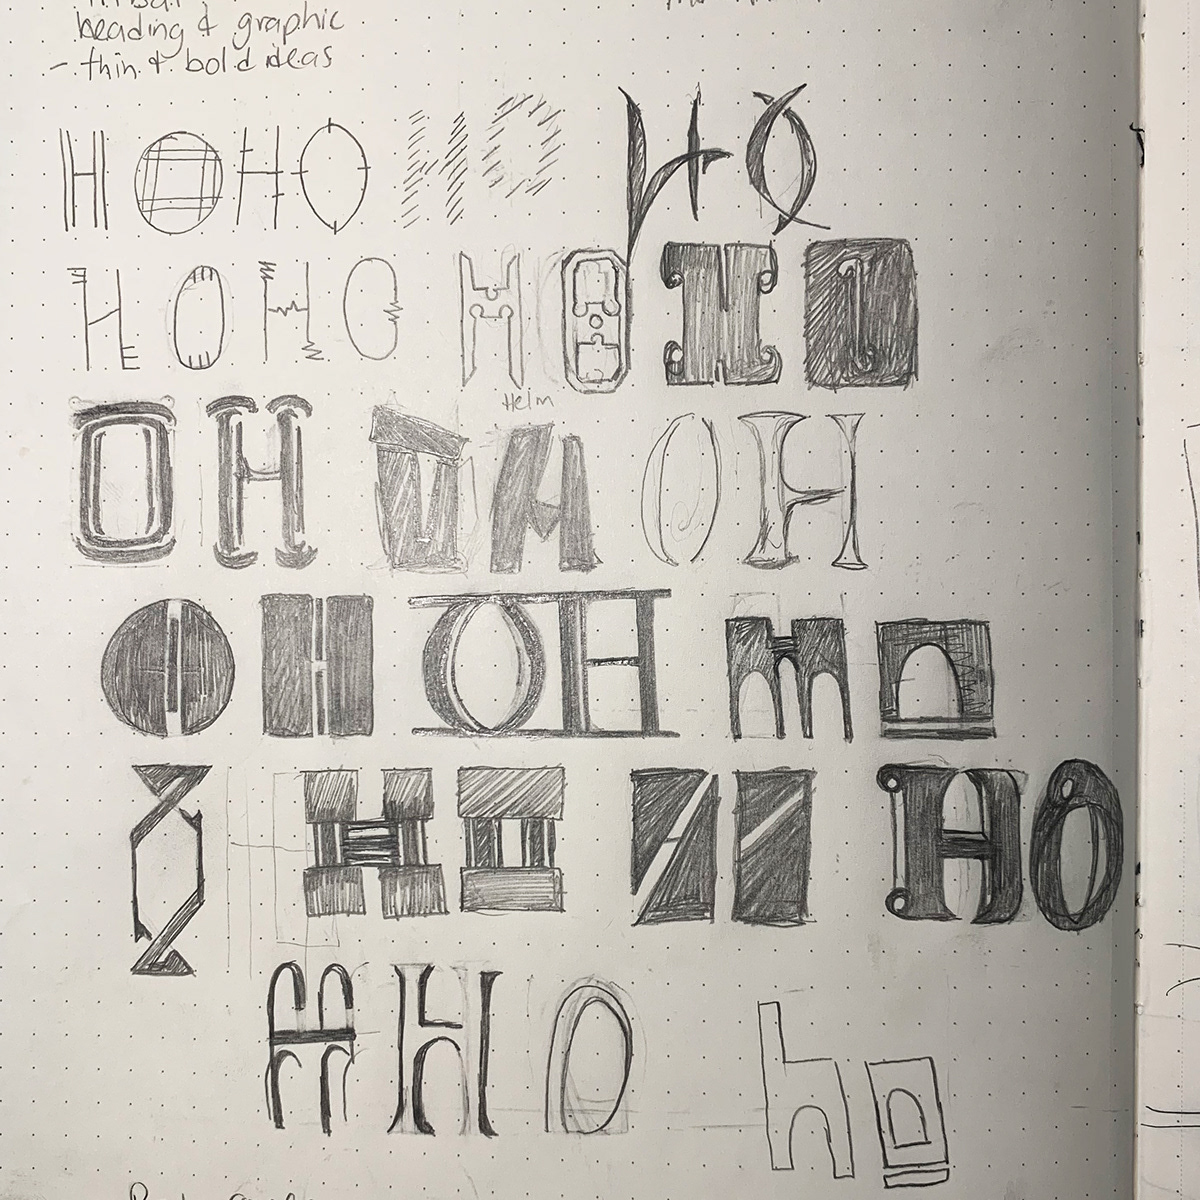 beading & graphic
- thin & bold ideas
HOHO HO HO
HOHO HO HO
Helm
OH OH OH
OH OH HO
O HO HO HO
H HO ho